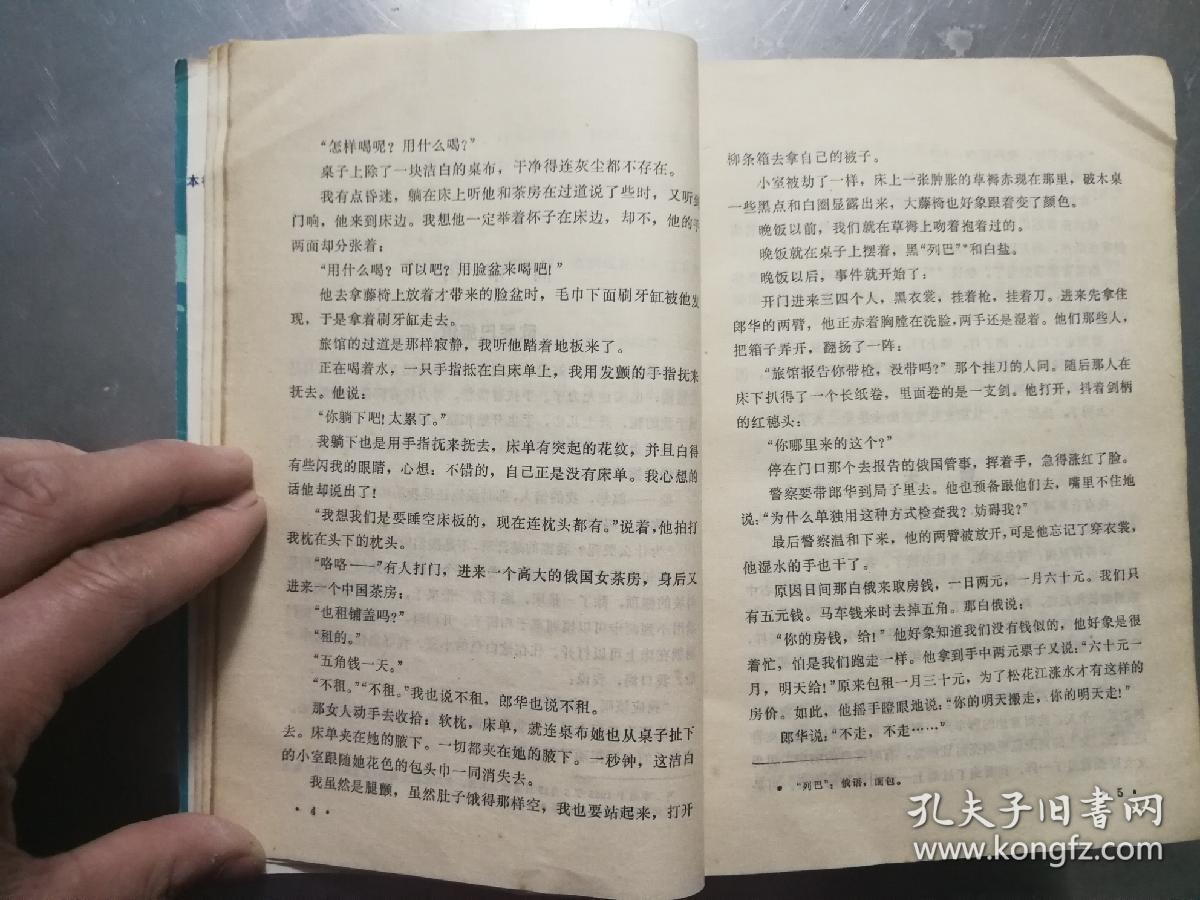 本
“怎样喝呢？用什么喝？”
桌子上除了一块洁白的桌布，干净得连灰尘都不存在。
我有点昏迷，躺在床上听他和茶房在过道说了些时，又听到
门响，他来到床边。我想他一定举着杯子在床边，却不，他的手
两面却分张着：
“用什么喝？可以吧？用脸盆来喝吧！”
他去拿藤椅上放着才带来的脸盆时，毛巾下面刷牙缸被他发
现，于是拿着刷牙缸走去。
旅馆的过道是那样寂静，我听他踏着地板来了。
正在喝着水，一只手指抵在白床单上，我用发颤的手指抚来
抚去。他说：
“你躺下吧！太累了。”
我躺下也是用手指抚来抚去，床单有突起的花纹，并且白得
有些闪我的眼睛，心想：不错的，自己正是没有床单。我心想的
话他却说出了！
“我想我们是要睡空床板的，现在连枕头都有。”说着，他拍打
我枕在头下的枕头。
“咯咯——”有人打门，进来一个高大的俄国女茶房，身后又
进来一个中国茶房：
“也租铺盖吗？”
“租的。”
“五角钱一天。”
“不租。”“不租。”我也说不租，郎华也说不租。
那女人动手去收拾：软枕，床单，就连桌布她也从桌子扯下
去。床单夹在她的腋下。一切都夹在她的腋下。一秒钟，这洁白
的小室跟随她花色的包头巾一同消失去。
我虽然是腿颤，虽然肚子饿得那样空，我也要站起来，打开
• 4 •
柳条箱去拿自己的被子。
小室被劫了一样，床上一张肿胀的草褥赤现在那里，破木桌
一些黑点和白圈显露出来，大藤椅也好象跟着变了颜色。
晚饭以前，我们就在草褥上吻着抱着过的。
晚饭就在桌子上摆着，黑“列巴”•和白盐。
晚饭以后，事件就开始了：
开门进来三四个人，黑衣裳，挂着枪，挂着刀。进来先拿住
郎华的两臂，他正赤着胸膛在洗脸，两手还是湿着。他们那些人，
把箱子弄开，翻扬了一阵：
“旅馆报告你带枪，没带吗？”那个挂刀的人问。随后那人在
床下扒得了一个长纸卷，里面卷的是一支剑。他打开，抖着剑柄
的红穗头：
“你哪里来的这个？”
停在门口那个去报告的俄国管事，挥着手，急得涨红了脸。
警察要带郎华到局子里去。他也预备跟他们去，嘴里不住地
说：“为什么单独用这种方式检查我？妨碍我？”
最后警察温和下来，他的两臂被放开，可是他忘记了穿衣裳，
他湿水的手也干了。
原因日间那白俄来取房钱，一日两元，一月六十元。我们只
有五元钱。马车钱来时去掉五角。那白俄说：
“你的房钱，给！”他好象知道我们没有钱似的，他好象是很
着忙，怕是我们跑走一样。他拿到手中两元票子又说：“六十元一
月，明天给！”原来包租一月三十元，为了松花江涨水才有这样的
房价。如此，他摇手瞪眼地说：“你的明天搬走，你的明天走！”
郎华说：“不走，不走……”
• “列巴”：俄语，面包。
5 •
孔夫子旧书网
www.kongfz.com